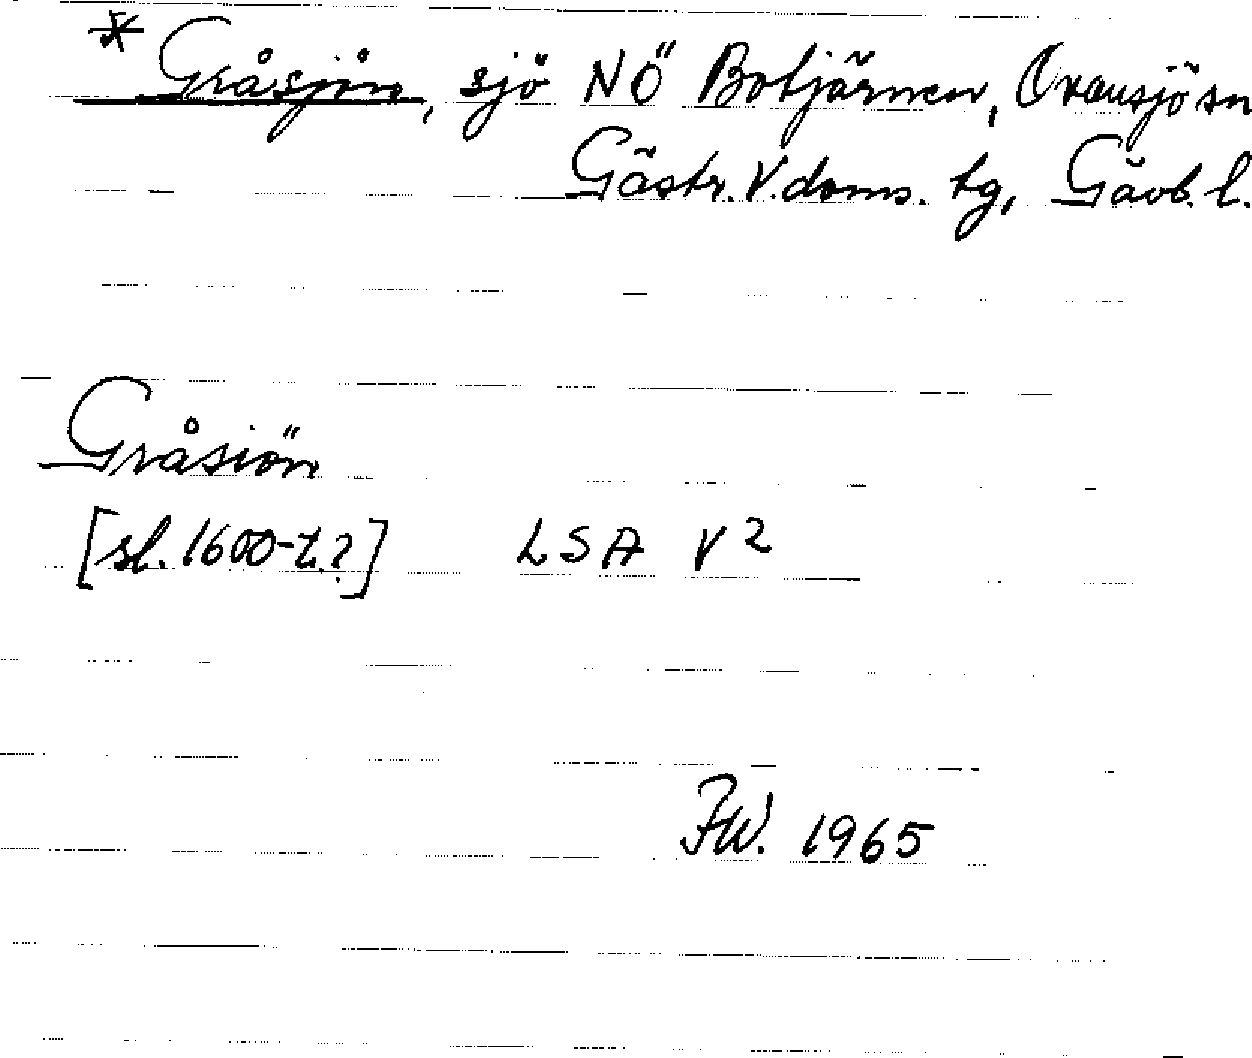 * Gråsjön, sjö NÖ Botjärnen, Ovansjö sn
Gästr. V. doms. tg, Gävb. l.
Gråsiön
[sl. 1600-t.?] LSA V 2
FW. 1965